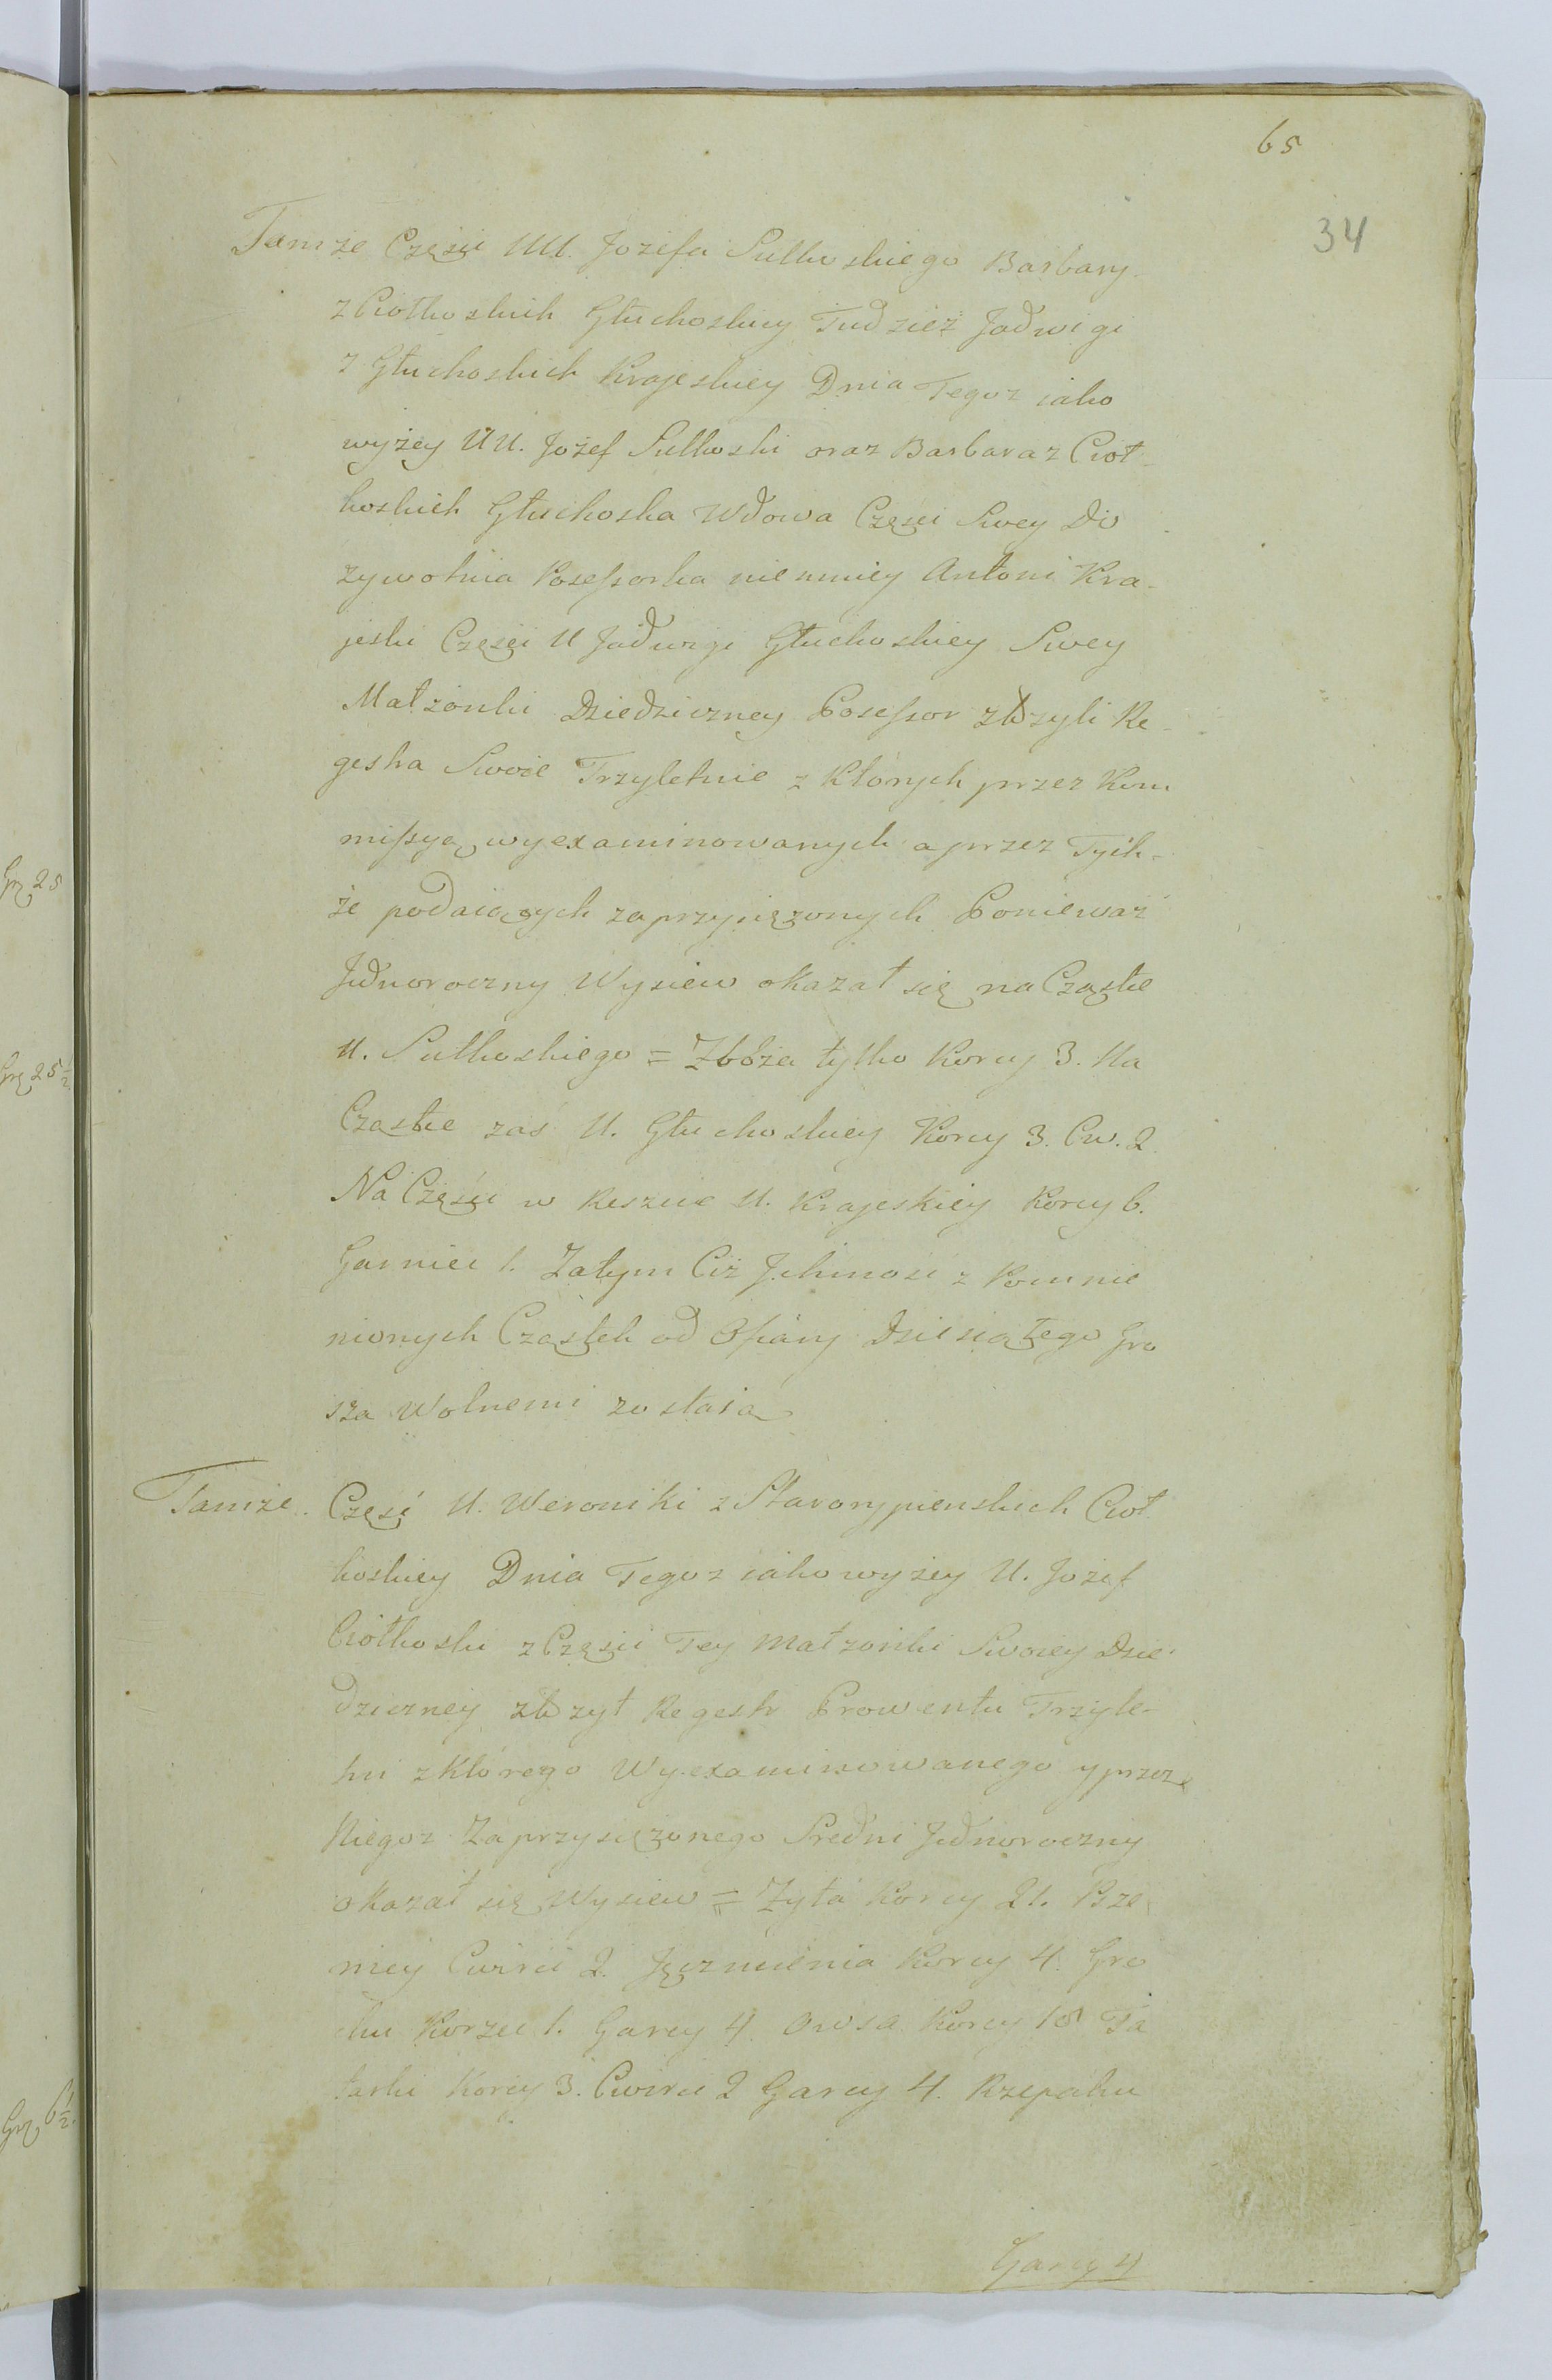 65
34
Tamże Części UU. Jozefa Sułkoskiego Barbary
z Ciołkoskich Głuchoskiey Tudzież Jadwigi
z Głuchoskich Krajeskiey Dnia Tegoz iako
wyżey UU. Jozef Sułkoski oraz Barbara z Cioł-
koskich Głuchoska Wdowa Części Swey Do
zywotnia Posessorka niemniey Antoni Kra-
jeski Części U Jadwigi Głuchoskiey Swey
Małzonki Dziedziczney Posessor złozyli Re-
gestra Swoie Trzyletnie z Których przez Kom
missyą wyexaminowanych a przez Tych-
że podaiących zaprzysięzonych Poniewaz
Jednoroczny Wysiew okazał się na Cząstce
U. Sułkoskiego = Zbóża tylko Korcy 3. Na
Cząstce zaś U. Głuchoskiey Korcy 3. Cw. 2.
Na Części w Reszcie U. Krajeskiey Korcy 6.
Garniec 1. Zatym Ciż Jchmość z Pomnie
nionych Cząstek od Ofiary Dziesiątego Gro
sza Wolnemi zostaią
Tamże. Część U. Weroniki z Starorypienskich Cioł
koskiey Dnia Tegoz iako wyżey U. Jozef
Ciołkoski z Części Tey Małzonki Swoiey Dzie
dziczney złozył Regestr Prowentu Trzyle-
tni z Którego Wyexaminowanego y przez
Niegoz Zaprzysiężonego Sredni Jednoroczny
okazał się Wysiew = Zyta Korcy 21. Psze
nicy Cwierci 2. Jęczmienia Korcy 4. Gro
chu Korzec 1. Garcy 4. Owsa Korcy 18 Ta
tarki Korcy 3. Cwierci 2 Garcy 4. Rzepaku
Garcy 4
Grz 25
Grz 25 1/2.
Grz 6 1/2.